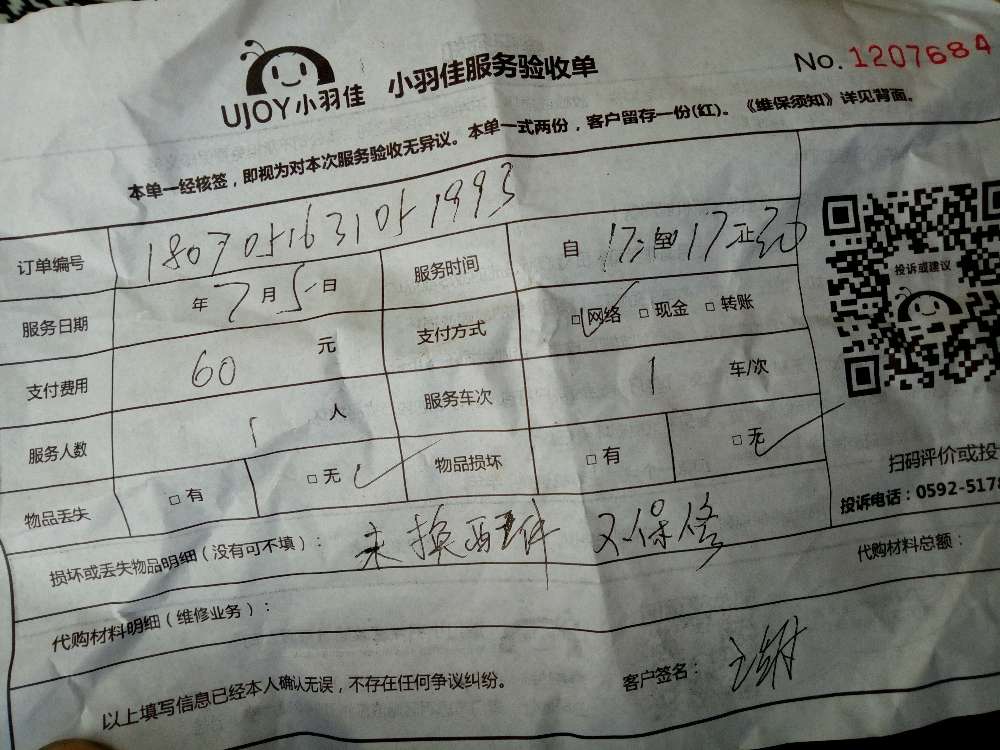 UJOY小羽佳 小羽佳服务验收单 No.1207684
本单一经核签，即视为对本次服务验收无异议。本单一式两份，客户留存一份(红)。《维保须知》详见背面。
订单编号 1807051631051993
服务日期 年7月5日 服务时间 自17:至17止30
支付费用 60元 支付方式 □网络 □现金 □转账
服务人数 1人 服务车次 1车/次
物品丢失 □有 □无 物品损坏 □有 □无
投诉或建议
扫码评价或投
投诉电话：0592-5178
损坏或丢失物品明细（没有可不填）：未换配件 不保修
代购材料明细（维修业务）： 代购材料总额：
以上填写信息已经本人确认无误，不存在任何争议纠纷。 客户签名：